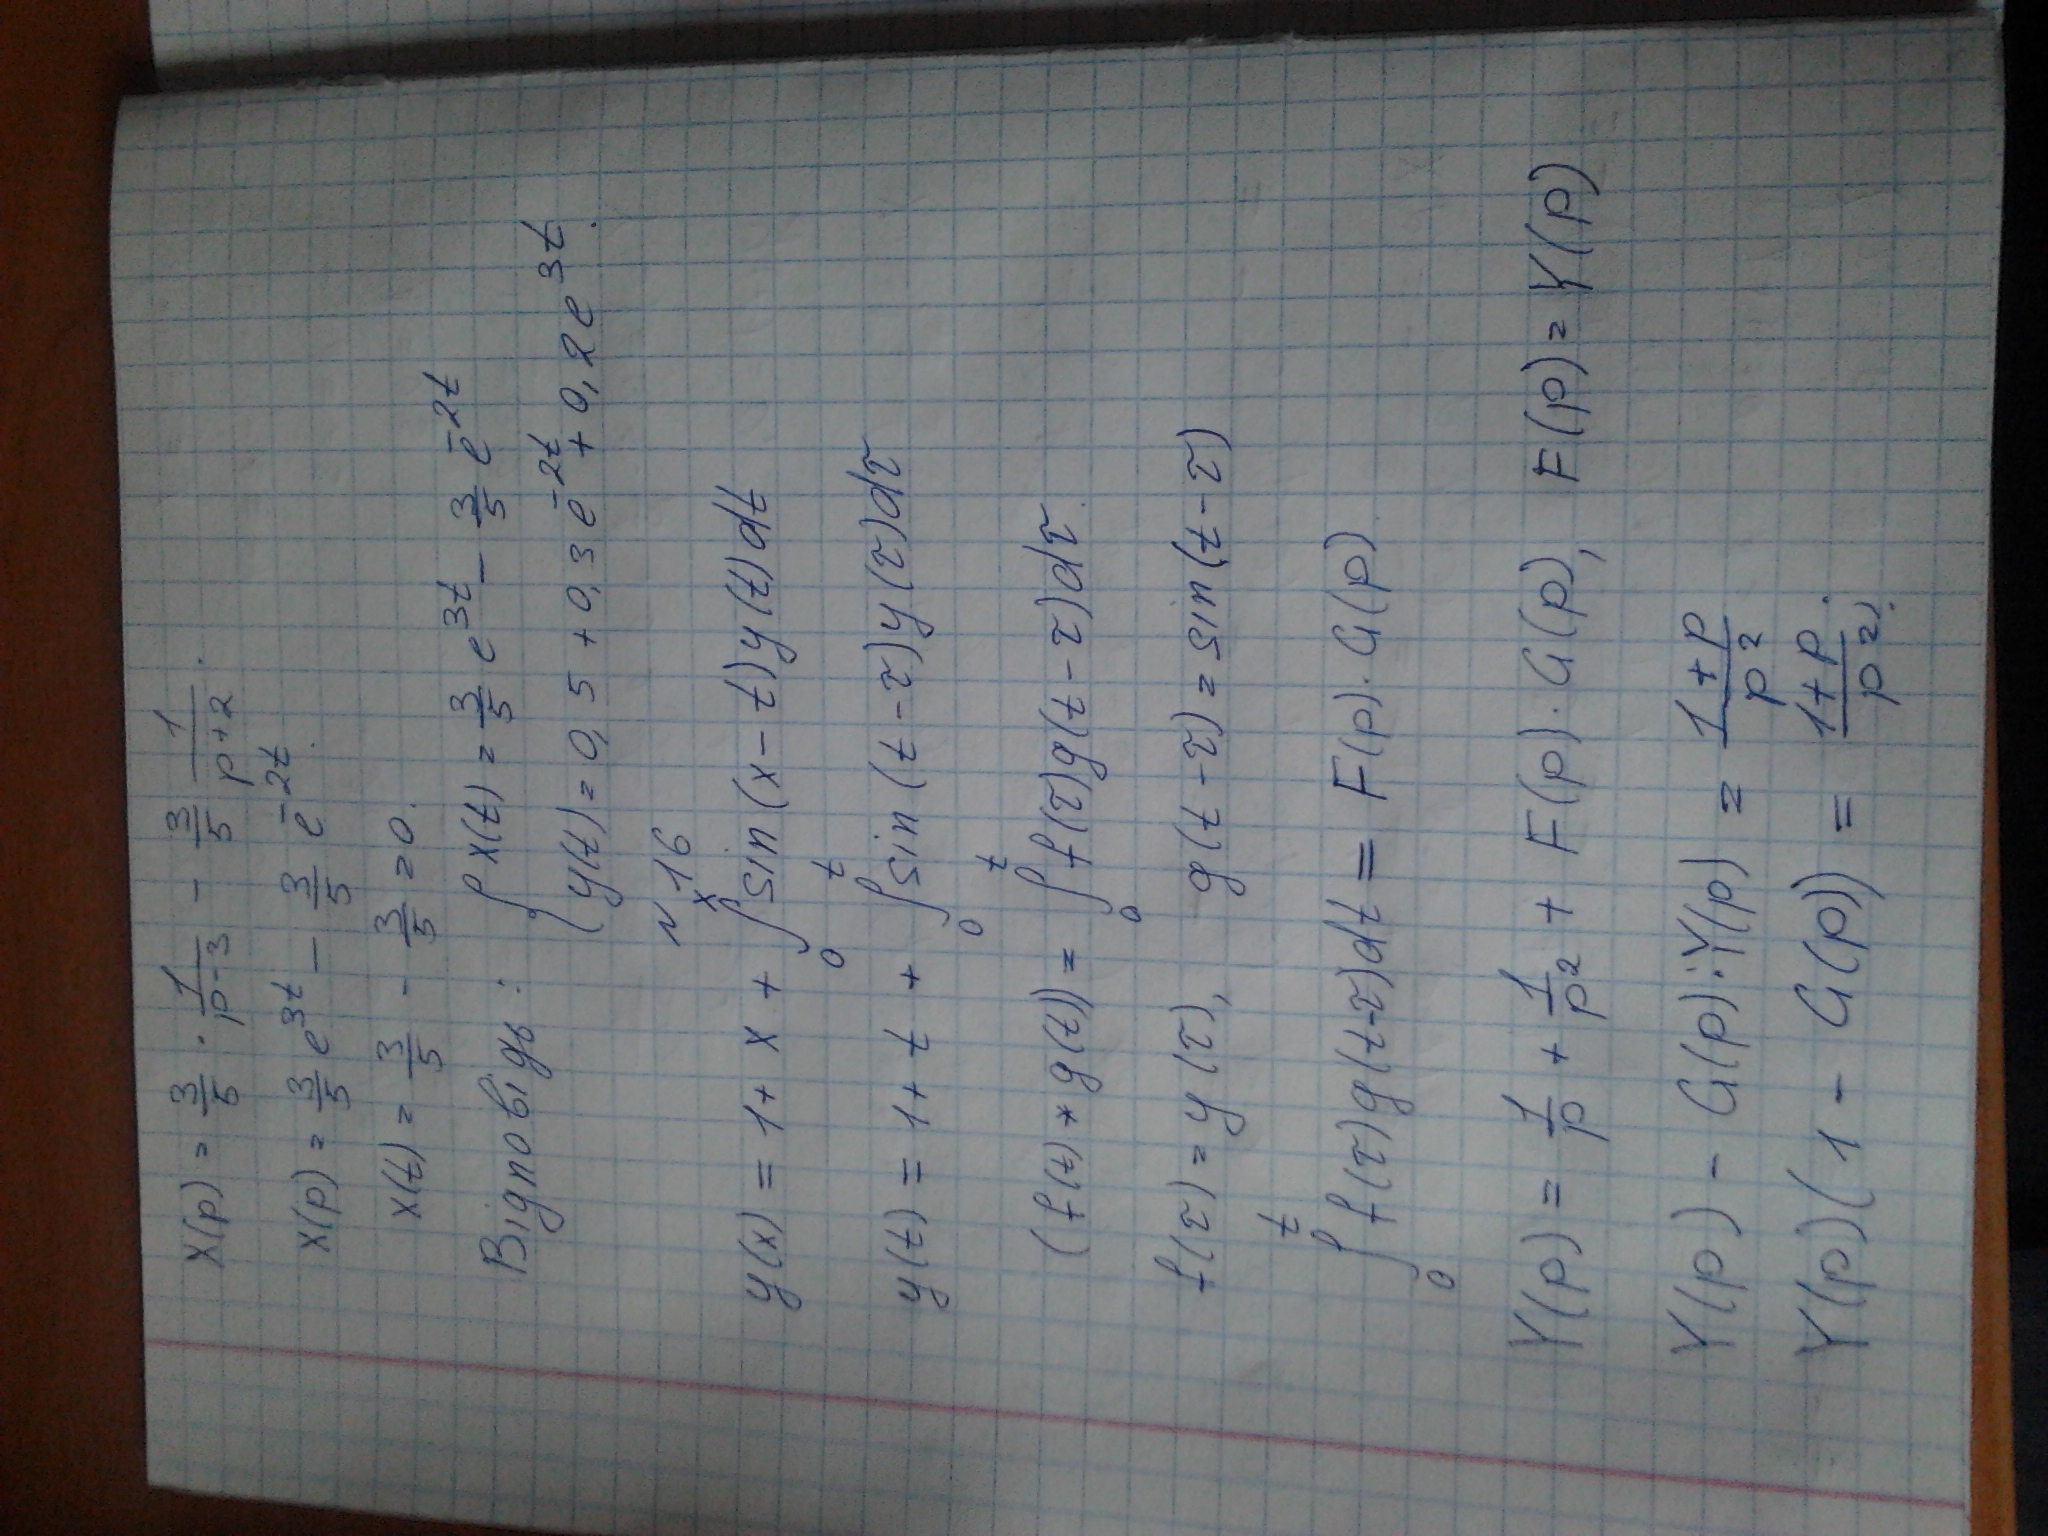 X(p) = 3/5 · 1/(p-3) - 3/5 1/(p+2).
x(p) = 3/5 e^{3t} - 3/5 e^{-2t}.
x(t) = 3/5 - 3/5 = 0.
Відповідь: { x(t) = 3/5 e^{3t} - 3/5 e^{-2t}
y(t) = 0,5 + 0,3 e^{-2t} + 0,2 e^{3t}.
~ 16
y(x) = 1 + x + ∫_0^x sin(x-t)y(t)dt
y(t) = 1 + t + ∫_0^t sin(t-τ)y(τ)dτ
(f(t) * g(t)) = ∫_0^t f(τ)g(t-τ)dτ.
f(τ) = y(τ), g(t-τ) = sin(t-τ)
∫_0^t f(τ)g(t-τ)dt = F(p)·G(p)
Y(p) = 1/p + 1/p² + F(p)·G(p), F(p) = Y(p)
Y(p) - G(p):Y(p) = (1+p)/p²
Y(p)(1 - G(p)) = (1+p)/p²;